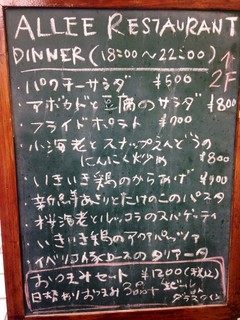 ALLEE RESTAURANT
DINNER (18:00～22:00)
2F
・パクチーサラダ ¥500
・アボカドと豆腐のサラダ ¥800
・フライドポテト ¥700
・小海老とスナップえんどうの
にんにく炒め ¥800
・いきいき鶏のからあげ ¥900
あさりとたけのこのパスタ
・桜海老とルッコラのスパゲティ
・いきいき鶏のアクアパッツァ
・イベリコ豚ロースのタリアータ
おつまみセート ¥1200(税込)
日替ありおつまみ3品+ビール
グラスワイン